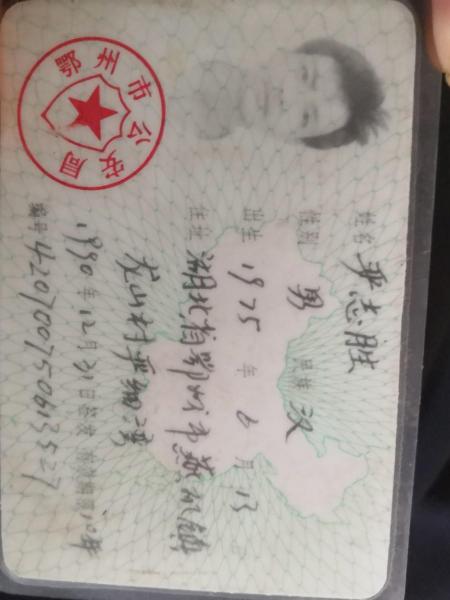 姓名 严志胜
性别 男 民族 汉
出生 1975 年 6 月 13 日
住址 湖北省鄂州市燕矶镇
龙山村严细湾
1990 年 12 月 31 日签发 有效期限 10 年
编号 420700750613527
鄂州市公安局